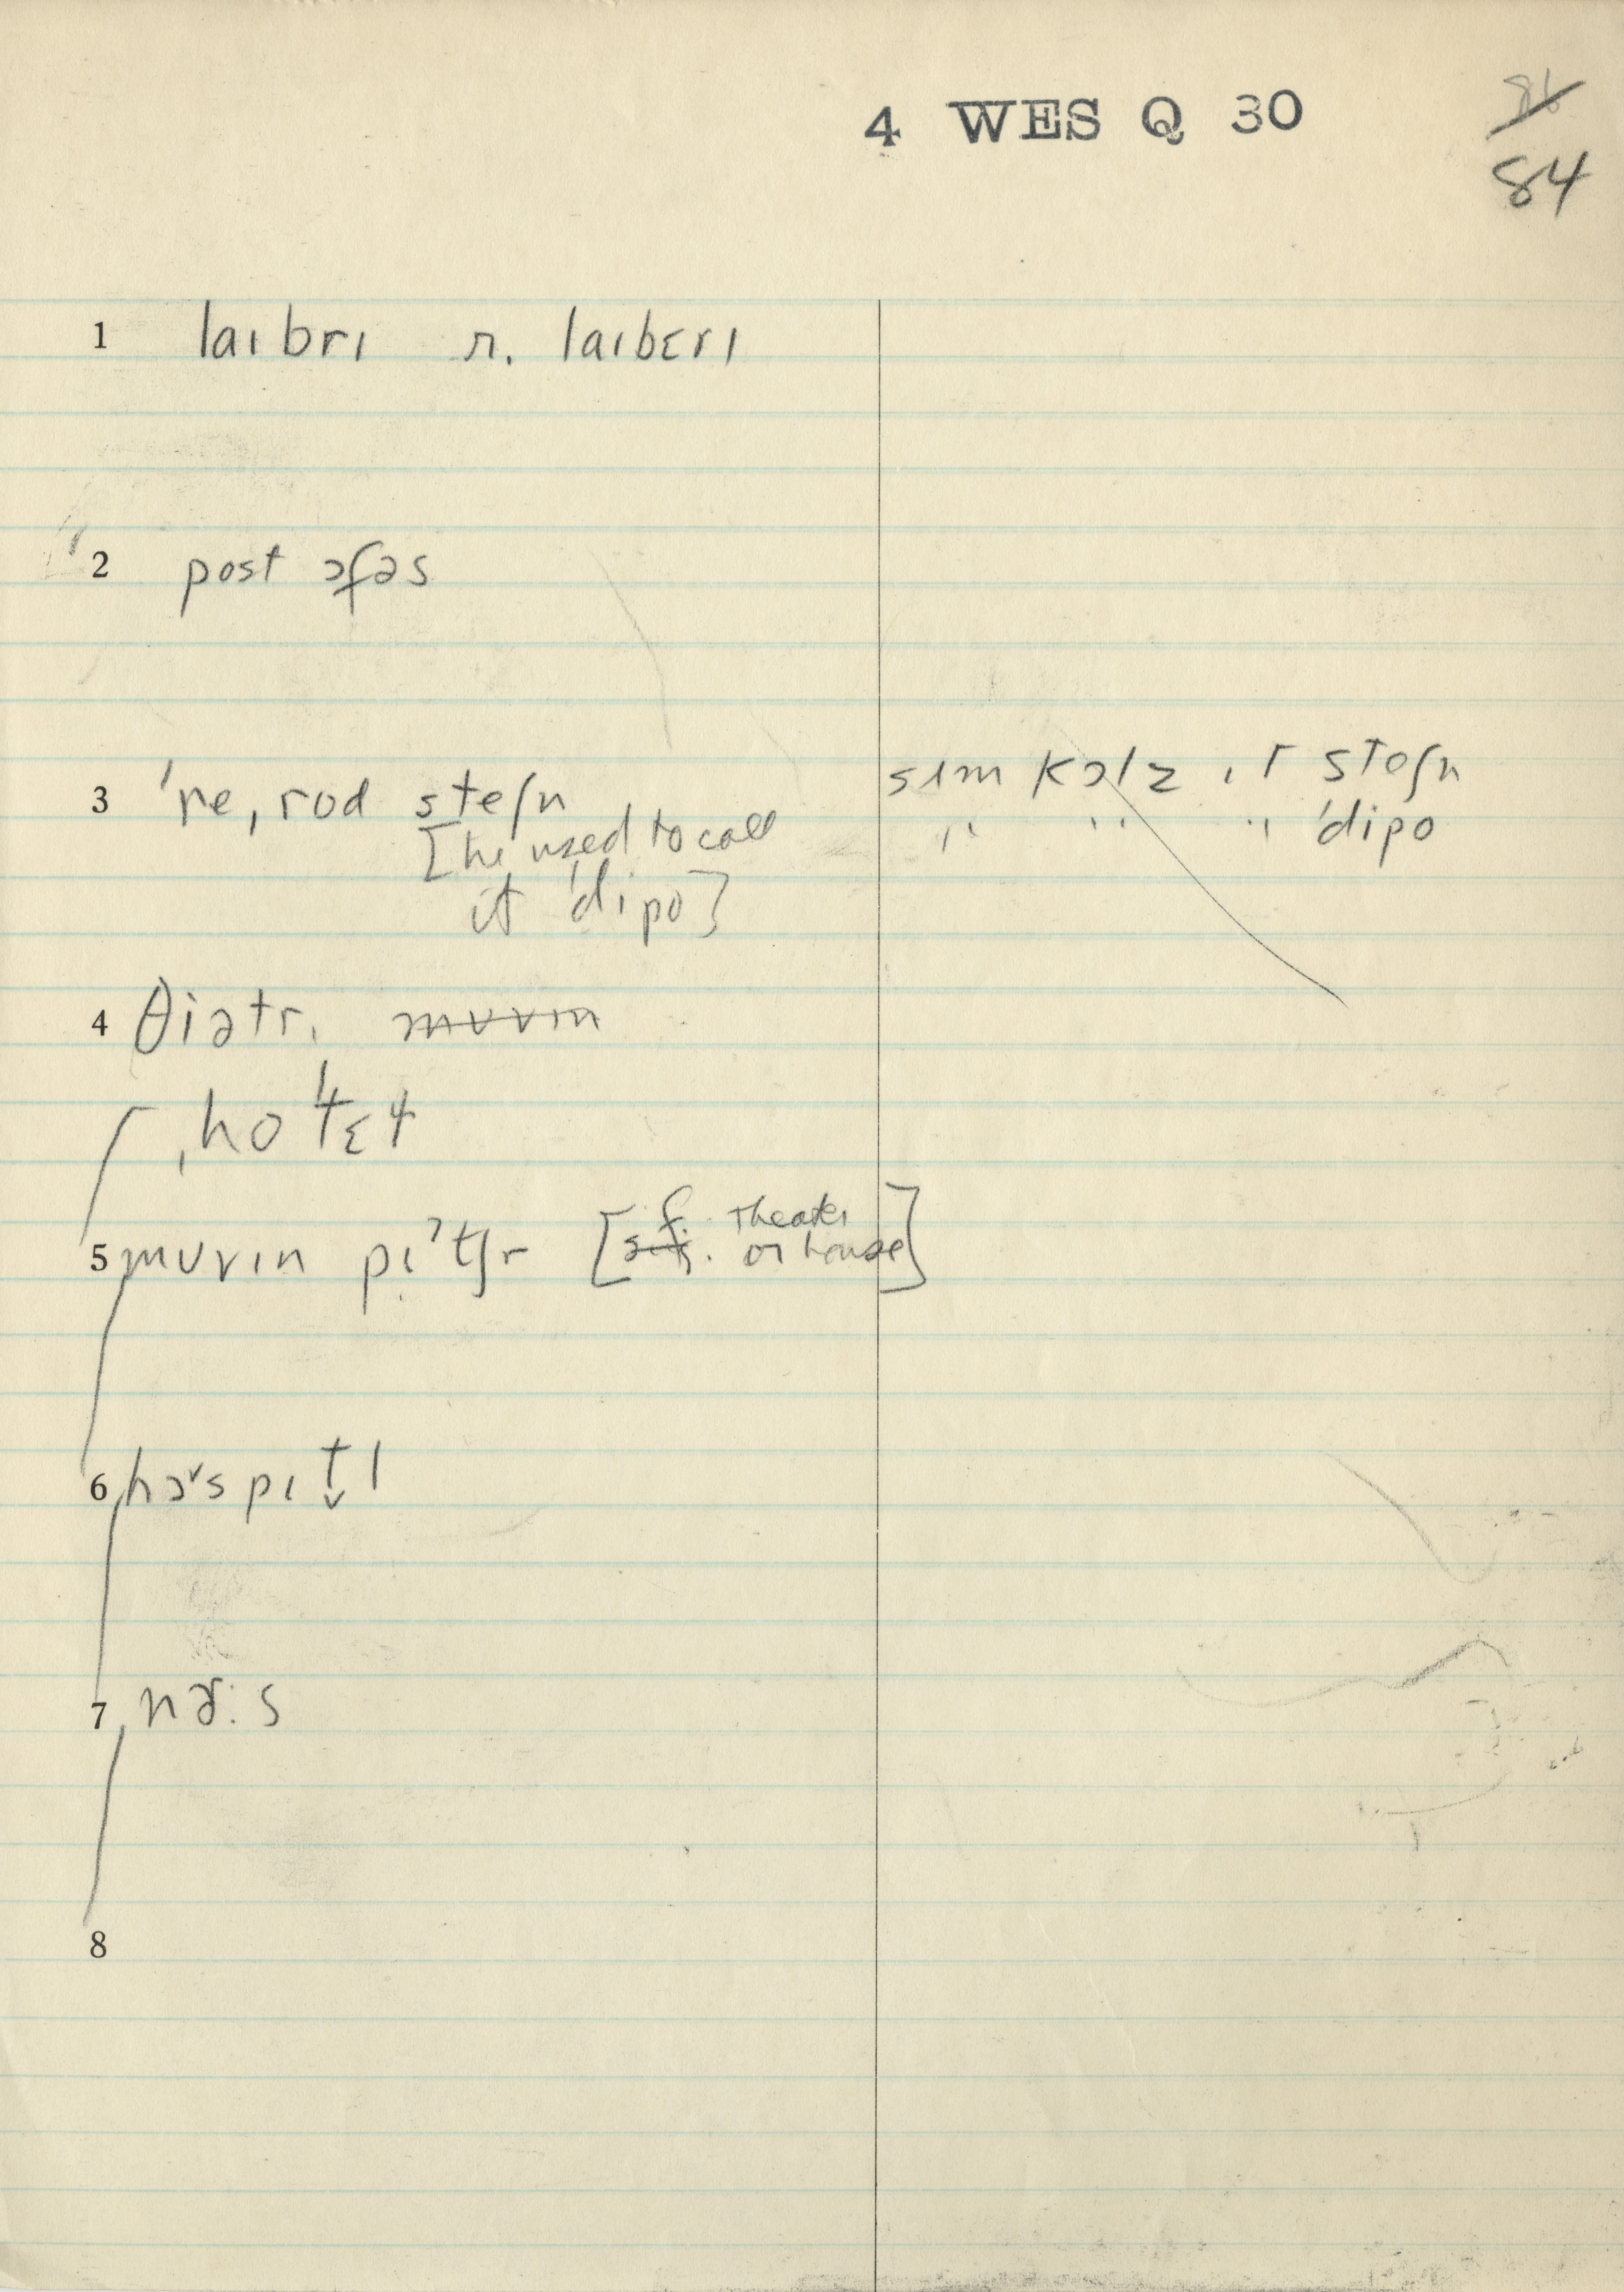 4 WES Q 30
84
1 laɪbrɪ r. laɪbɛrɪ
2 post ɔfəs
3 ˈreˌrod steʃn
[he used to call
it ˈdipo]
sɪm kɔlz ɪt steʃn
" " " ˈdipo
4 θiətr. muvɪn
ˌhoˈtɛɫ
5 muvɪn pɪˀtʃr [f. Theater
or house]
6 hɔ˅spɪt̬l
7 nɚ:s
8